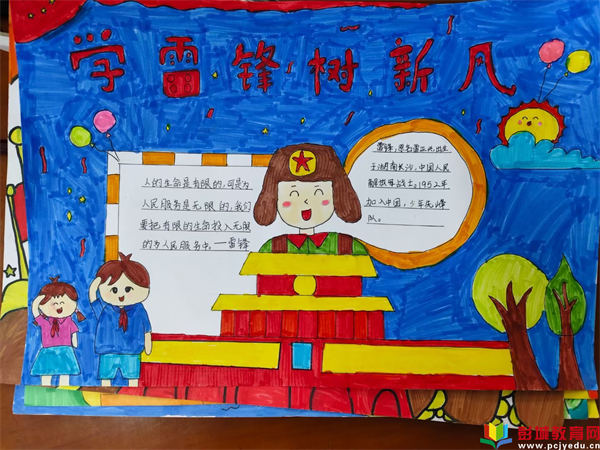 学雷锋树新风
人的生命是有限的,可是为
人民服务是无限的,我们
要把有限的生命投入无限
的为人民服务中。—雷锋
雷锋,原名雷正兴,出生
于湖南长沙,中国人民
解放军战士。1952年
加入中国,少年先锋
队。
彭城教育网
www.pcjyedu.cn